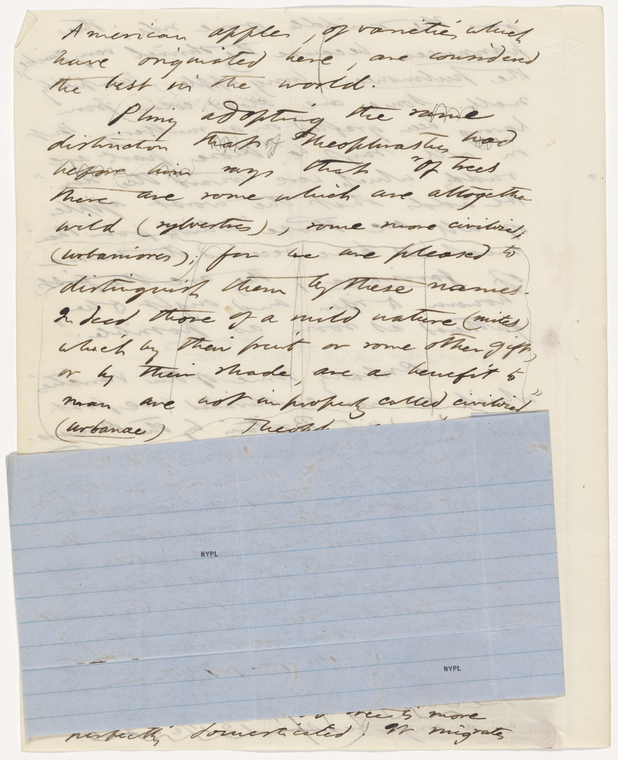 American apples, of varieties which
have originated here, are considered
the best in the world.
Pliny adopting the same
distinction that of Theophrastus had
before him says that "Of trees
there are some which are altogether
wild (sylvestres), some more civilized,
(urbaniores); for we are pleased to
distinguish them by these names.
Indeed those of a mild nature (mites)
which by their fruit or some other gift,
or by their shade, are a benefit to
man are not improperly called civilized"
(urbanae)
NYPL
NYPL
more
perfectly domesticated. It migrates